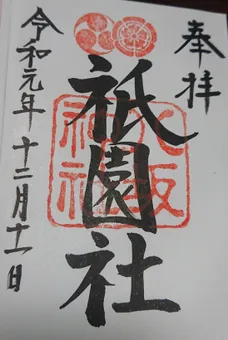 奉拝
祇園社
八坂神社
令和元年十二月十一日